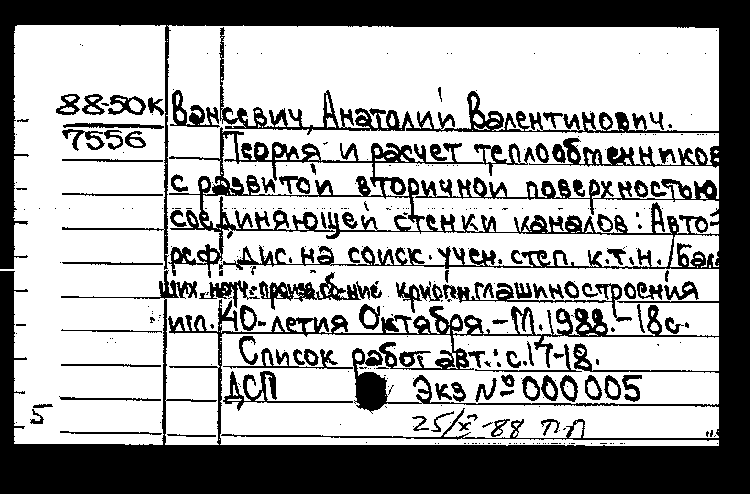 88-50к Вансевич, Анатолий Валентинович.
7556 Теория и расчет теплообменников
с развитой вторичной поверхностью
соединяющей стенки каналов: Авто-
реф. дис. на соиск. учен. степ. к.т.н. /Бала
ших. науч.-произв. об-ние криоген. машиностроения
им. 40-летия Октября.-М. 1988.-18с.
Список работ авт.: с.17-18.
ДСП Экз №000005
25/X-88 П-П
5